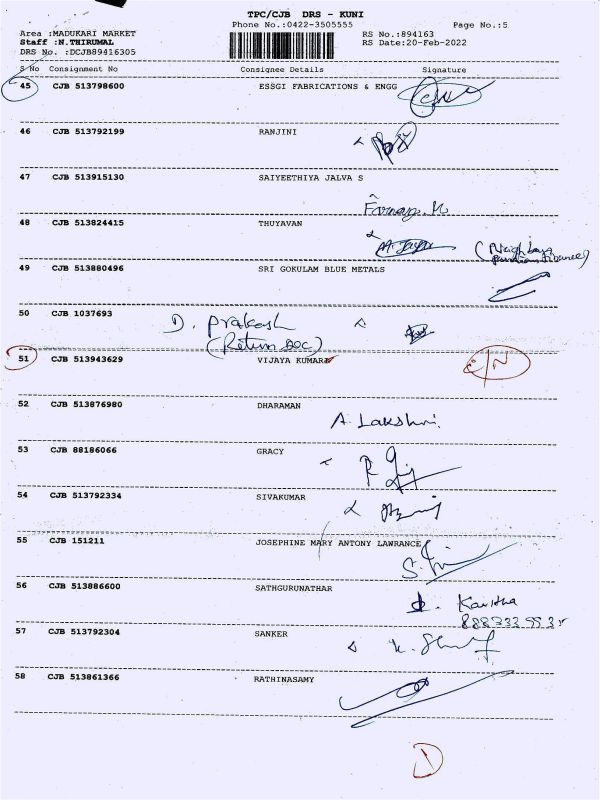 TPC/CJB DRS - KUNI
Phone No.:0422-3505555 Page No.:5
Area :MADUKARI MARKET RS No.:894163
Staff :N.THIRUMAL RS Date:20-Feb-2022
DRS No. :DCJB89416305
S No Consignment No Consignee Details Signature
45 CJB 513798600 ESSGI FABRICATIONS & ENGG
46 CJB 513792199 RANJINI
47 CJB 513915130 SAIYEETHIYA JALVA S
48 CJB 513824415 THUYAVAN
49 CJB 513880496 SRI GOKULAM BLUE METALS
50 CJB 1037693 D. prakash
(Return DOC)
51 CJB 513943629 VIJAYA KUMAR C/N
52 CJB 513876980 DHARAMAN
A. Lakshmi
53 CJB 88186066 GRACY
54 CJB 513792334 SIVAKUMAR
55 CJB 151211 JOSEPHINE MARY ANTONY LAWRANCE
56 CJB 513886600 SATHGURUNATHAR
Kavitha
57 CJB 513792304 SANKER
58 CJB 513861366 RATHINASAMY
1